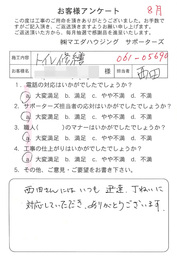 お客様アンケート
8月
この度は工事のご依頼を頂きありがとうございました。お手数で
すがご記入頂き、ご返送頂きますようお願い申し上げます。
ご返送頂いた方から、毎月抽選で感謝品を進呈いたします。
㈱マエダハウジング サポーターズ
工事名
トイレ修繕
061-05690
お客様名
様
担当者
西田
1．電話の対応はいかがでしたでしょうか？
a 大変満足 b．満足 c．やや不満 d．不満
2．サポーターズ担当者の対応はいかがでしたでしょうか？
a 大変満足 b．満足 c．やや不満 d．不満
3．職人（ ）のマナーはいかがでしたでしょうか？
a 大変満足 b．満足 c．やや不満 d．不満
4．工事の仕上がりはいかがでしたでしょうか？
a 大変満足 b．満足 c．やや不満 d．不満
5．その他、ご意見・ご要望をお書き下さい。
西田さんにはいつも迅速、丁ねいに
対応していただき、ありがとうございます。